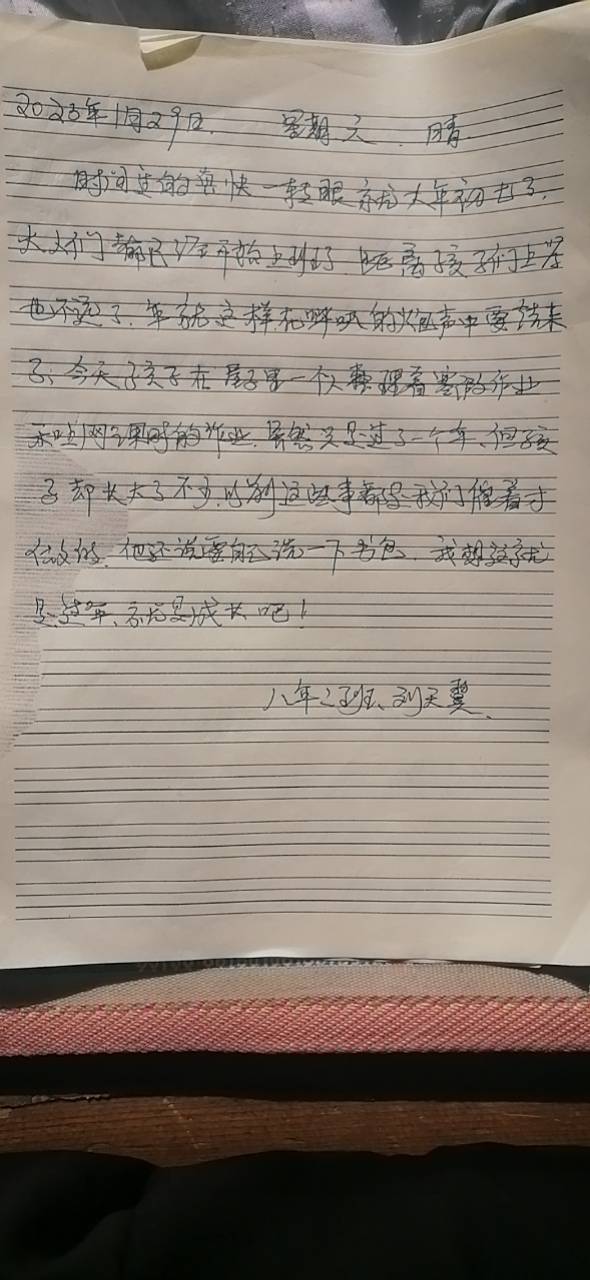 2023年1月29日. 星期天. 晴
时间过的真快一转眼就大年初七了.
大人们都已经开始上班了 距离孩子们上学
也不远了. 年就这样在呼吸的炮声中要结束
了. 今天孩子在屋子里一个人整理着寒假作业
和网课时的作业. 虽然只是过了一个年, 但孩
子却长大了不少. 以前这些事都是我们催着才
做的. 他还说要自己洗一下书包. 我想这就
是过年、就是成长吧!
八年二班、刘天翼.